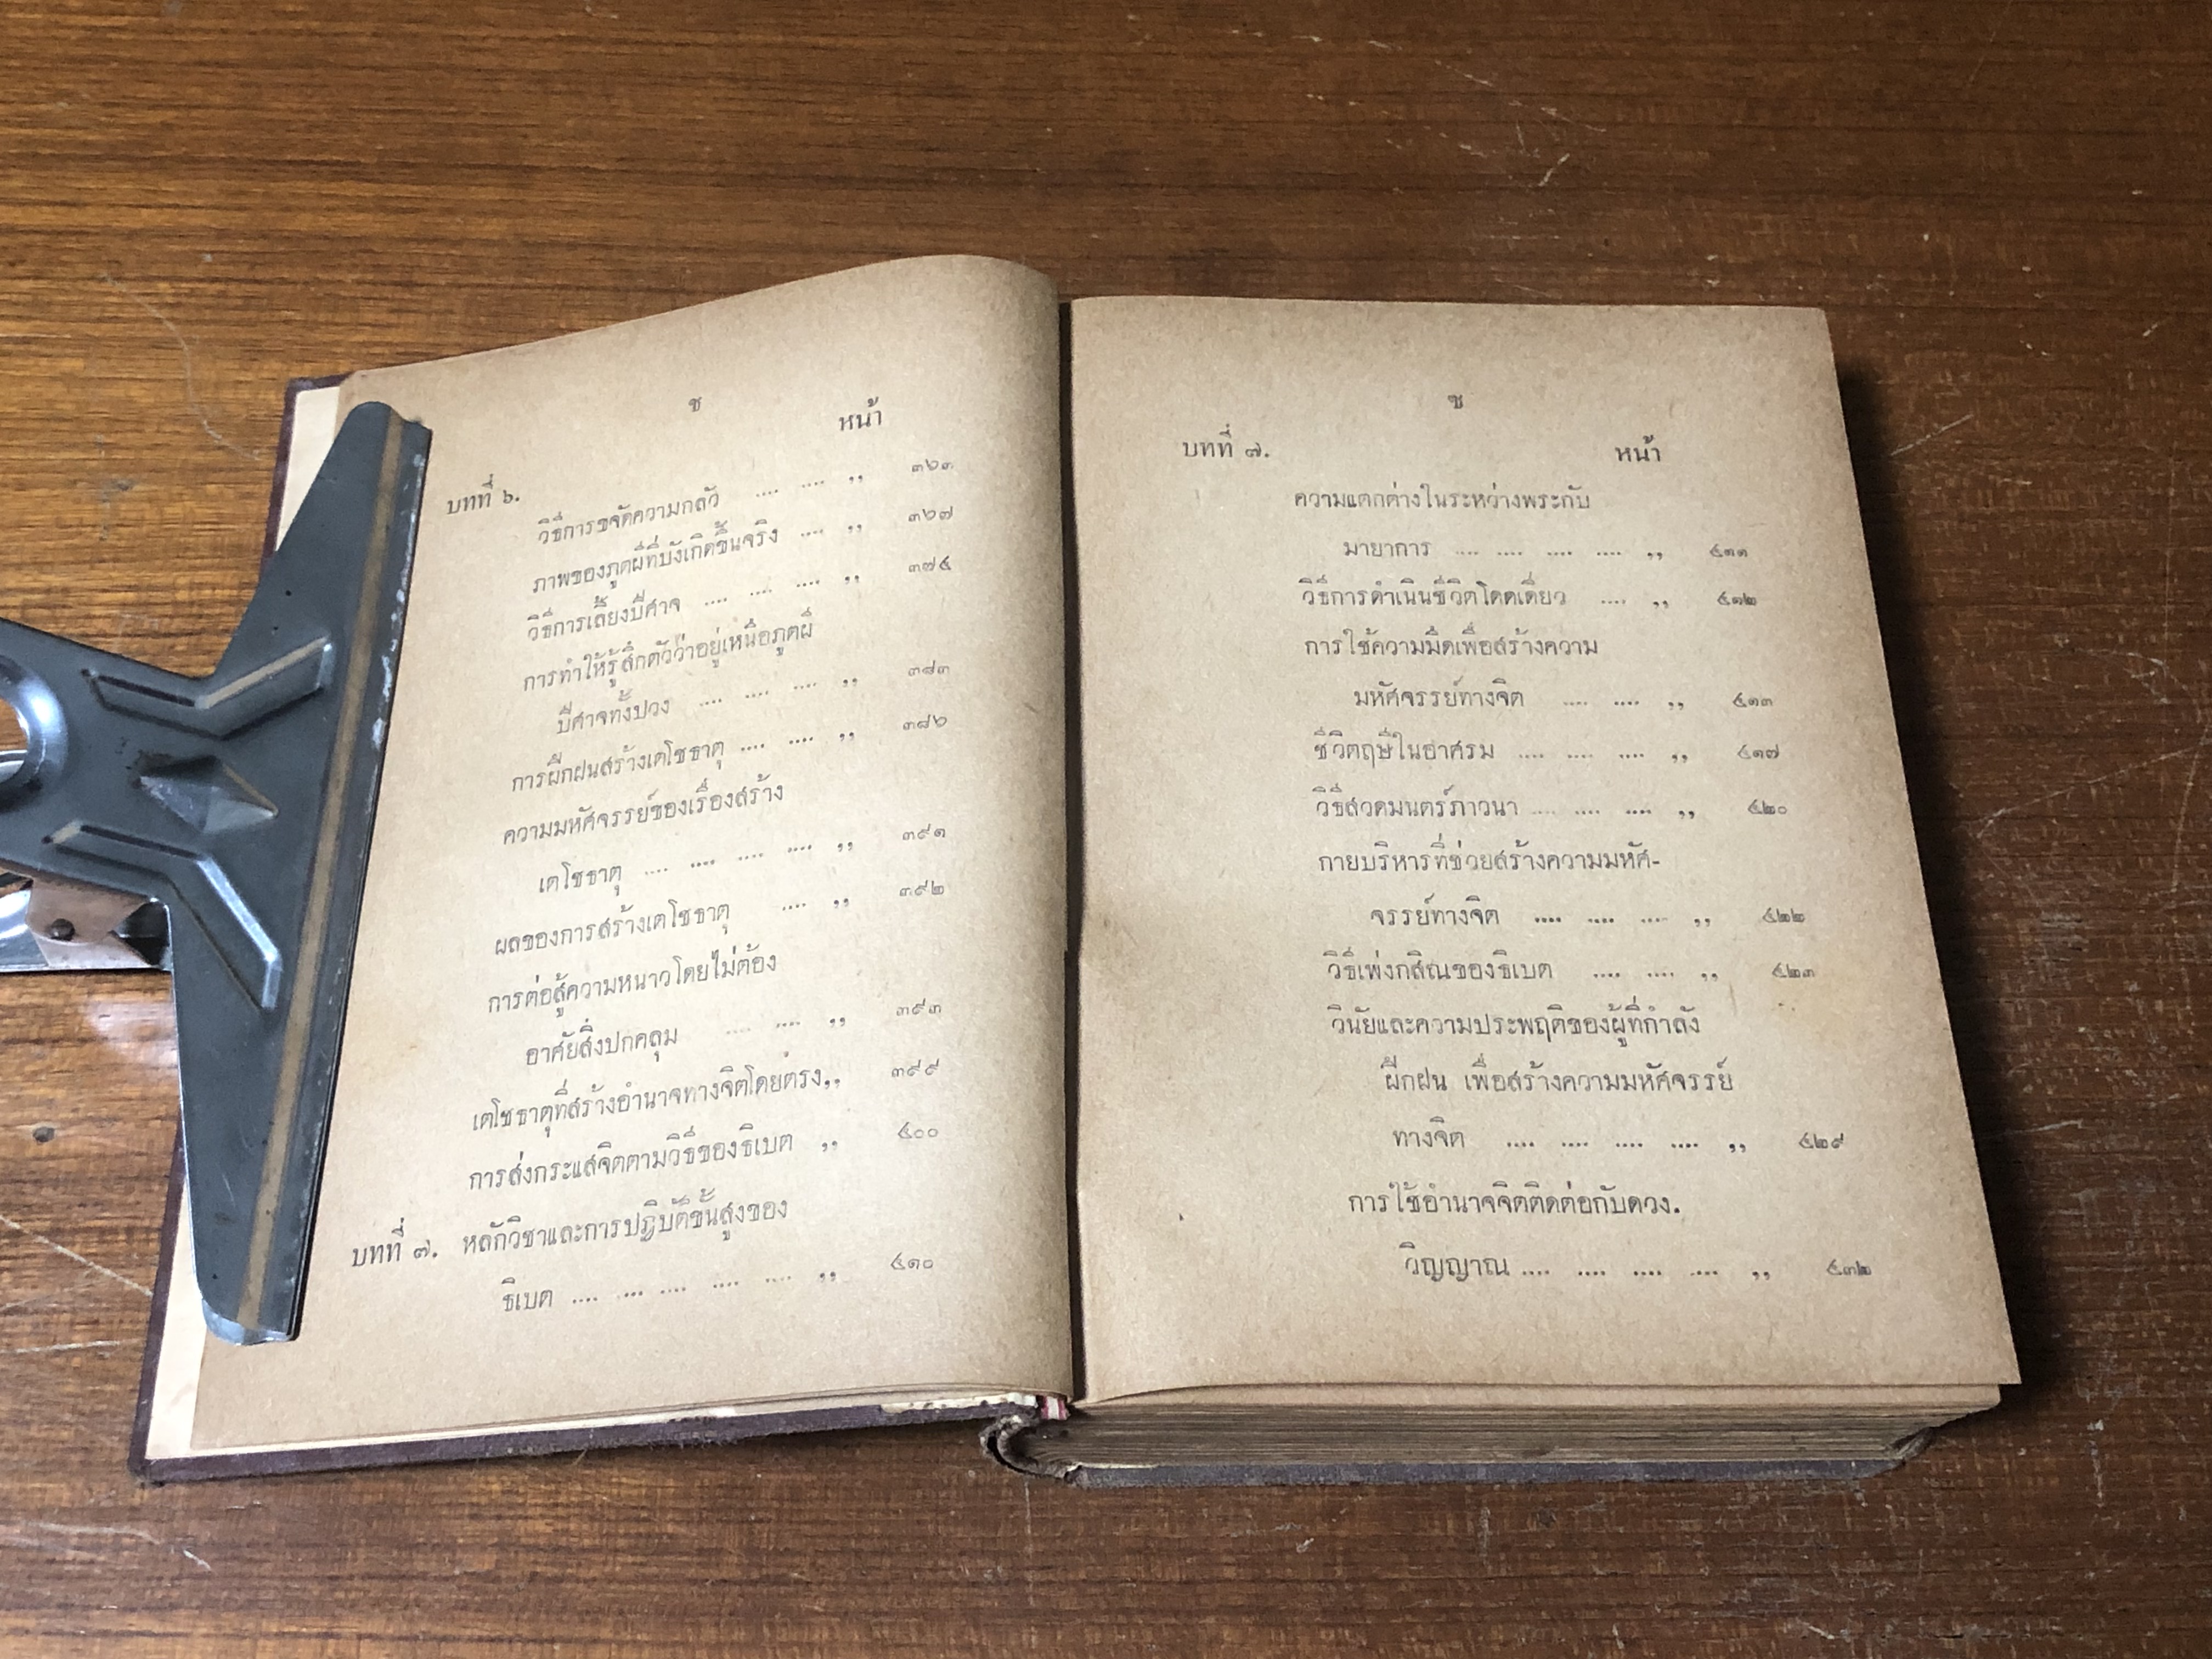 ช
หน้า
บทที่ ๖.
วิธีการขจัดความกลัว .... .... ,, ๓๖๓
ภาพของภูตผีที่บังเกิดขึ้นจริง .... ,, ๓๖๗
วิธีการเลี้ยงปีศาจ .... .... .... ,, ๓๗๔
การทำให้รู้สึกตัวว่าอยู่เหนือภูตผี
ปีศาจทั้งปวง .... .... .... ,, ๓๘๓
การฝึกฝนสร้างเตโชธาตุ .... .... ,, ๓๘๖
ความมหัศจรรย์ของเรื่องสร้าง
เตโชธาตุ .... .... .... .... ,, ๓๙๑
ผลของการสร้างเตโชธาตุ .... ,, ๓๙๒
การต่อสู้ความหนาวโดยไม่ต้อง
อาศัยสิ่งปกคลุม .... .... ,, ๓๙๓
เตโชธาตุที่สร้างอำนาจทางจิตโดยตรง,, ๓๙๙
การส่งกระแสจิตตามวิธีของธิเบต ,, ๔๐๐
บทที่ ๗. หลักวิชาและการปฏิบัติขั้นสูงของ
ธิเบต .... .... .... .... .... ,, ๔๑๐
ซ
บทที่ ๗. หน้า
ความแตกต่างในระหว่างพระกับ
มายาการ .... .... .... .... ,, ๔๑๑
วิธีการดำเนินชีวิตโดดเดี่ยว .... ,, ๔๑๒
การใช้ความมืดเพื่อสร้างความ
มหัศจรรย์ทางจิต .... .... ,, ๔๑๓
ชีวิตฤษีในอาศรม .... .... .... ,, ๔๑๗
วิธีสวดมนตร์ภาวนา .... .... .... ,, ๔๒๐
กายบริหารที่ช่วยสร้างความมหัศ-
จรรย์ทางจิต .... .... .... ,, ๔๒๒
วิธีเพ่งกสิณของธิเบต .... .... ,, ๔๒๓
วินัยและความประพฤติของผู้ที่กำลัง
ฝึกฝน เพื่อสร้างความมหัศจรรย์
ทางจิต .... .... .... .... ,, ๔๒๙
การใช้อำนาจจิตติดต่อกับดวง.
วิญญาณ .... .... .... .... ,, ๔๓๒